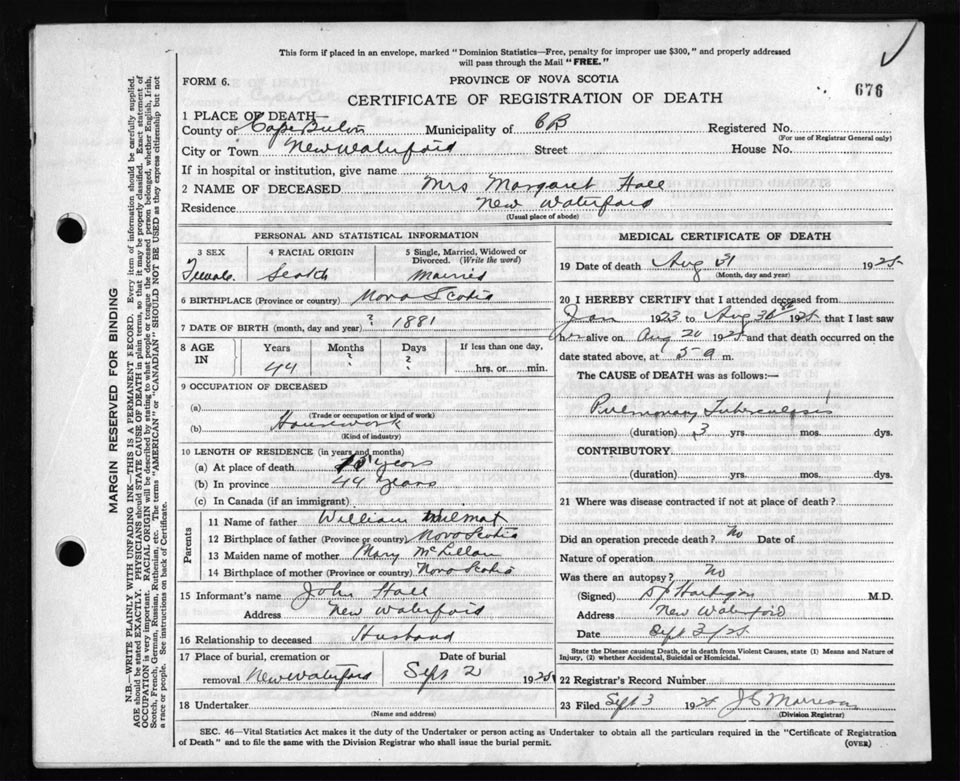 This form if placed in an envelope, marked "Dominion Statistics—Free, penalty for improper use $300," and properly addressed
will pass through the Mail "FREE."
FORM 6.
PROVINCE OF NOVA SCOTIA
676
CERTIFICATE OF REGISTRATION OF DEATH
1 PLACE OF DEATH—
County of Cape Breton Municipality of CB Registered No.
(For use of Registrar General only)
City or Town New Waterford Street House No.
If in hospital or institution, give name
2 NAME OF DECEASED Mrs Margaret Hall
Residence New Waterford
(Usual place of abode)
PERSONAL AND STATISTICAL INFORMATION
3 SEX 4 RACIAL ORIGIN 5 Single, Married, Widowed or
Divorced. (Write the word)
Female Scotch Married
6 BIRTHPLACE (Province or country) Nova Scotia
7 DATE OF BIRTH (month, day and year) ? 1881
8 AGE
IN
Years Months Days If less than one day,
44 ? ? hrs. or min.
9 OCCUPATION OF DECEASED
(a)
(Trade or occupation or kind of work)
(b) Housework
(Kind of industry)
10 LENGTH OF RESIDENCE (in years and months)
(a) At place of death years
(b) In province 44 years
(c) In Canada (if an immigrant)
Parents
11 Name of father William
12 Birthplace of father (Province or country) Nova Scotia
13 Maiden name of mother Mary
14 Birthplace of mother (Province or country) Nova Scotia
15 Informant's name John Hall
Address New Waterford
16 Relationship to deceased Husband
17 Place of burial, cremation or Date of burial
removal New Waterford Sept 2 1925
18 Undertaker
(Name and address)
MEDICAL CERTIFICATE OF DEATH
19 Date of death Aug 31 1925
(Month, day and year)
20 I HEREBY CERTIFY that I attended deceased from
Jan 1923 to Aug 30 1925 that I last saw
her alive on Aug 20 1925 and that death occurred on the
date stated above, at 5 a m.
The CAUSE of DEATH was as follows:—
Pulmonary Tuberculosis
(duration) 3 yrs. mos. dys.
CONTRIBUTORY
(duration) yrs. mos. dys.
21 Where was disease contracted if not at place of death?
Did an operation precede death? No Date of
Nature of operation
Was there an autopsy? No
(Signed) M.D.
Address New Waterford
Date Sept 3/25
State the Disease causing Death, or in death from Violent Causes, state (1) Means and Nature of
Injury, (2) whether Accidental, Suicidal or Homicidal.
22 Registrar's Record Number
23 Filed Sept 3 1925
(Division Registrar)
SEC. 46—Vital Statistics Act makes it the duty of the Undertaker or person acting as Undertaker to obtain all the particulars required in the "Certificate of Registration
of Death" and to file the same with the Division Registrar who shall issue the burial permit.
(OVER)
MARGIN RESERVED FOR BINDING
N.B.—WRITE PLAINLY WITH UNFADING INK—THIS IS A PERMANENT RECORD. Every item of information should be carefully supplied.
AGE should be stated EXACTLY. PHYSICIANS should STATE CAUSE OF DEATH in plain terms, so that it may be properly classified. Exact statement of
OCCUPATION is very important. RACIAL ORIGIN will be described by stating to what people or tongue the deceased person belonged, whether English, Irish,
Scotch, French, German, Russian, Ruthenian, etc. The terms "AMERICAN" or "CANADIAN" SHOULD NOT BE USED as they express citizenship but not
a race or people. See instructions on back of Certificate.